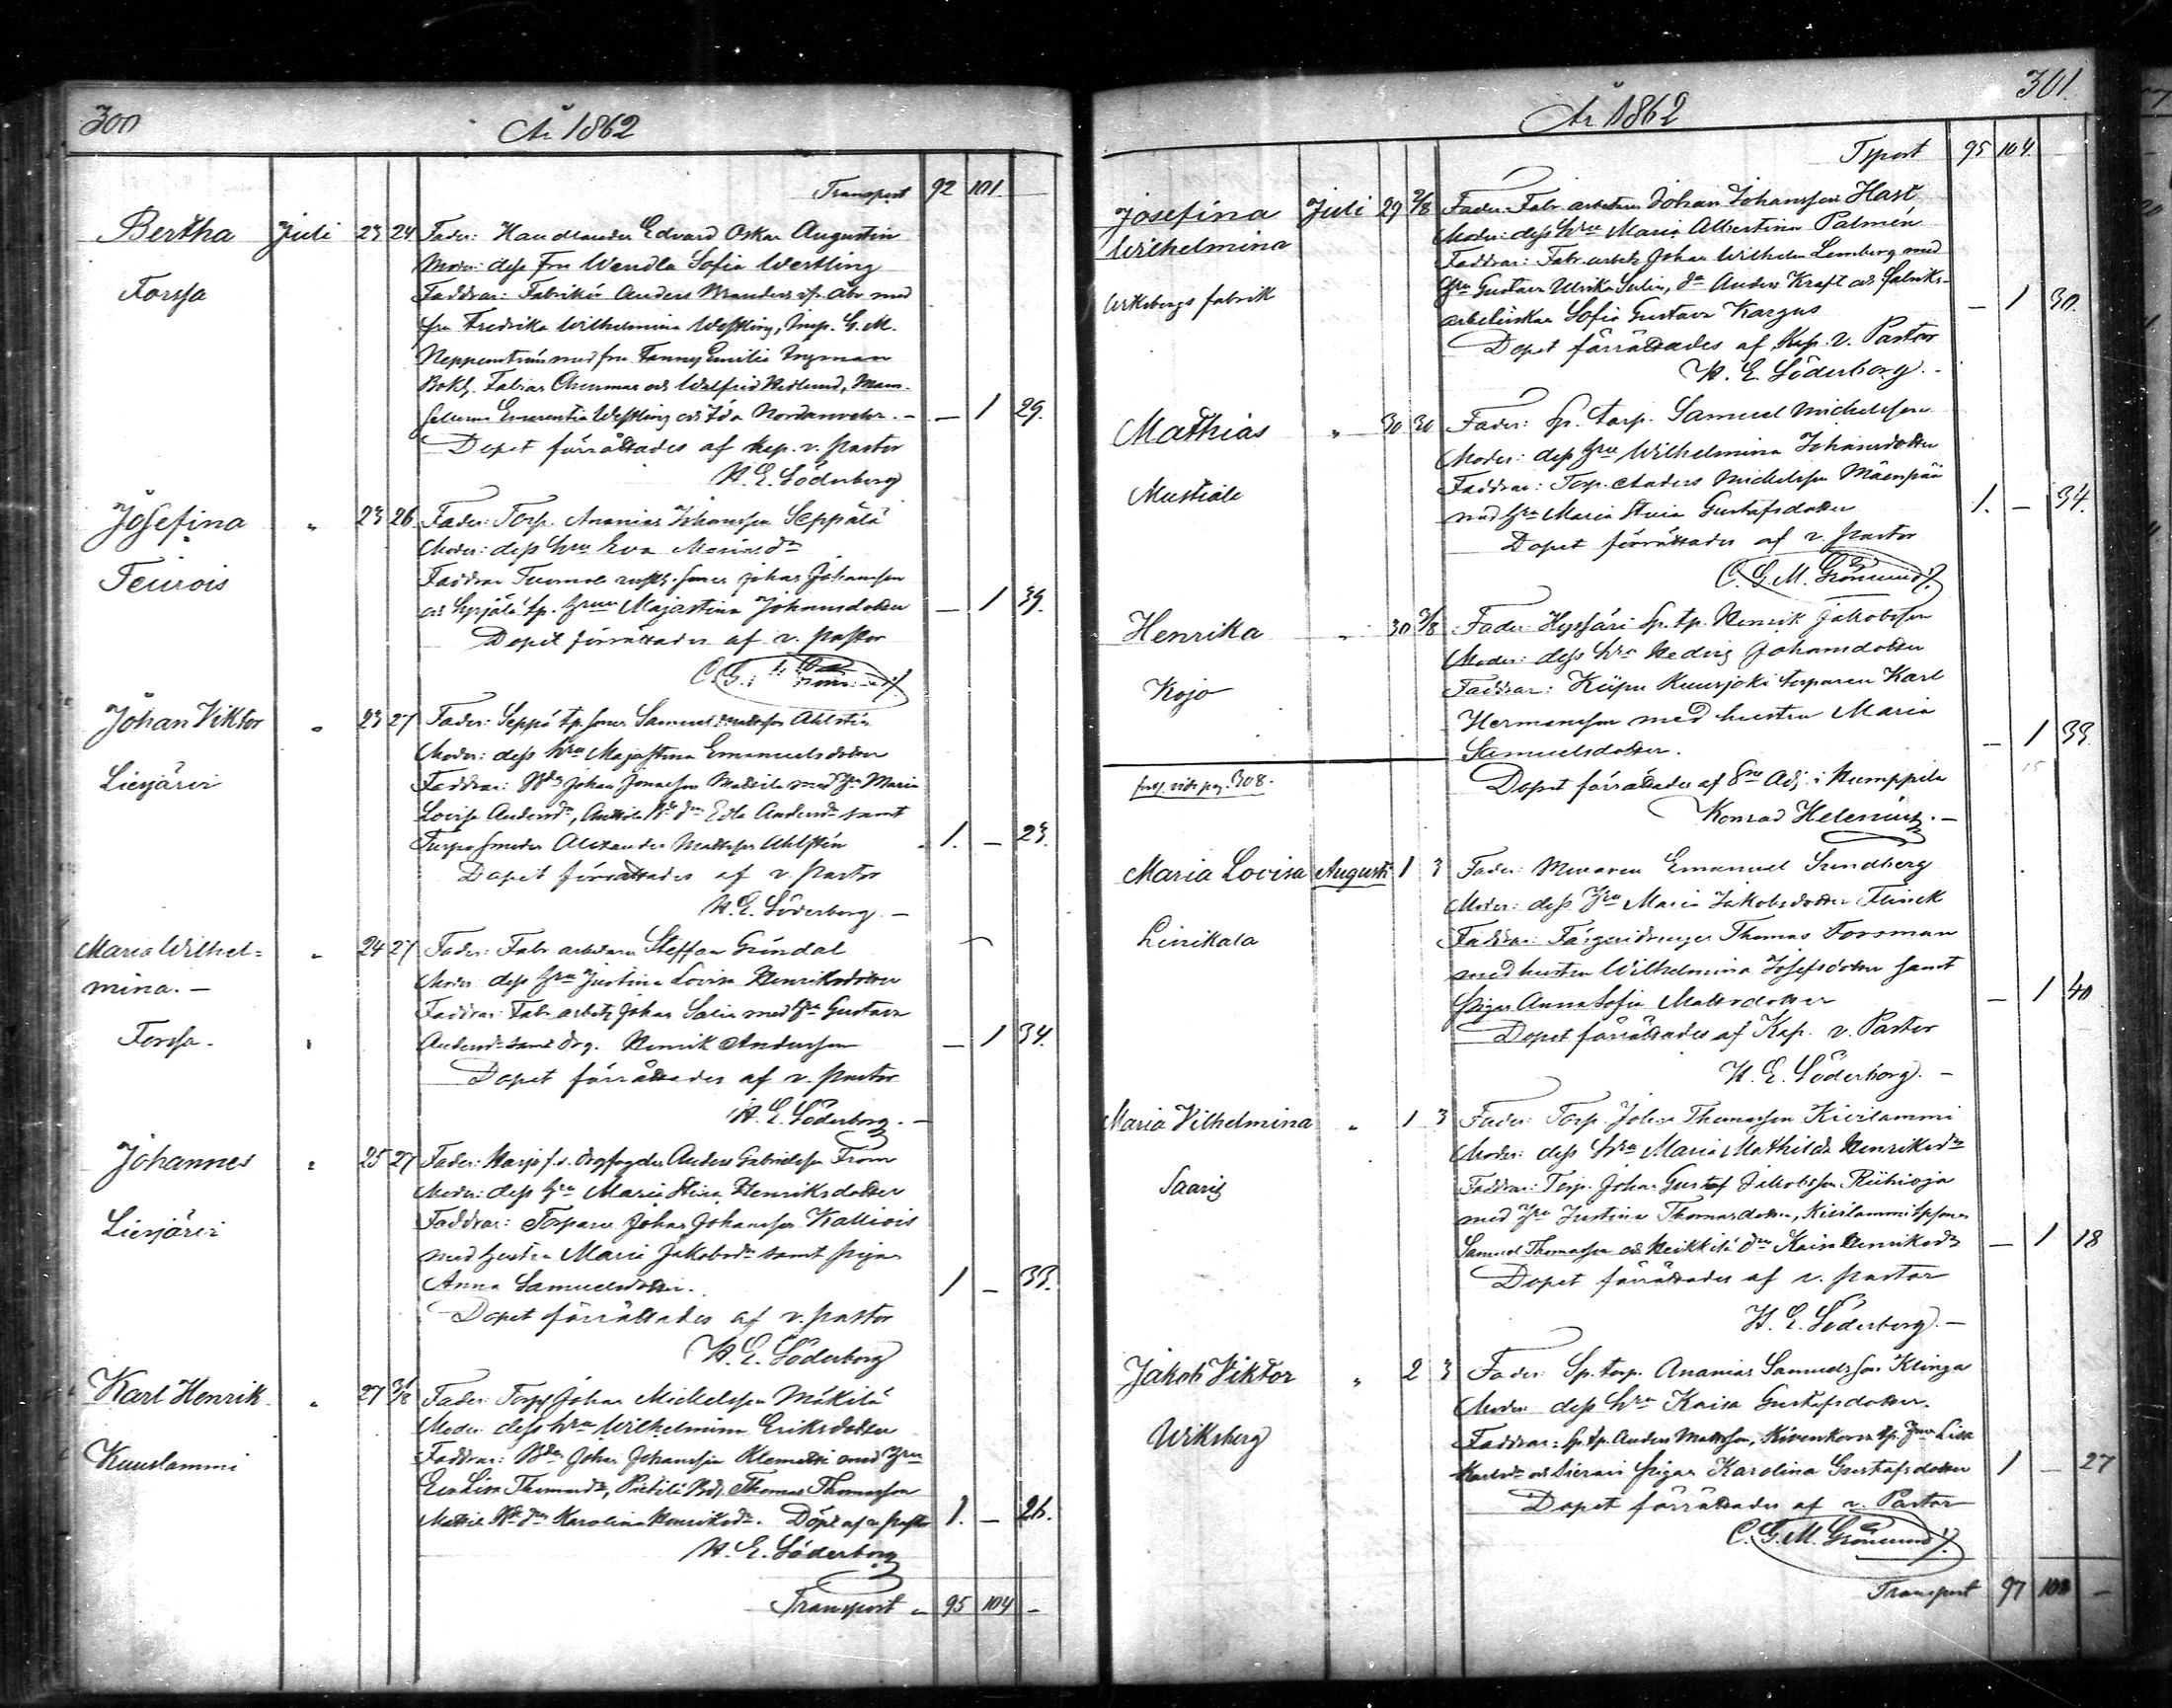 300
År 1862
Transport 92 101.
Bertha Juli 23 24 Fader: Handlanden Edvard Oskar Augustin
Moder: dess Fru Wendla Sofia Westling
Forssa Faddrar: Fabrikör Anders af Åbo med
fru Fredrika Wilhelmina Westling, Insp. G. M.
med fru Fanny Emilia Ingman
Bokh. Fabian och Walfrid Hedlund, Mam-
sellerna Emerentia Westling och Ida — 1 29.
Dopet förrättades af Kap. v. Pastor
H. E. Söderberg
Josefina " 23 26 Fader: Torp. Ananias Johansson Seppälä
Moder: dess hru Eva
Teurois Faddrar Tuomol rusth. sonen Johan Johansson
och tp. hrun Majastina Johansdotter — 1 39.
Dopet förrättades af v. pastor
C. G. M. Grönmund
Johan Viktor " 23 27 Fader: Seppä tp. sonen Samuel Mattsson Ahlstén
Moder: dess hru Majastina Emanuelsdotter
Liesjärvi Faddrar: Johan Jonasson Mattila med hru Maria
Lovisa Andersdr, Edla Andersdr samt
smeden Alexander Mattsson Ahlstén 1. — 23.
Dopet förrättades af v. Pastor
H. E. Söderberg. —
Maria Wilhel= " 24 27 Fader: Fabr arbetaren Steffan Gründal
mina. — Moder dess hru Justina Lovisa Henriksdotter
Faddrar: Fabr arbetr Johan Salin med hru Gustava
Forssa. Andersdr samt drg. Henrik Andersson — 1 34.
Dopet förrättades af v. pastor
H. E. Söderberg. —
Johannes " 25 27 Fader: Anders Gabrielsson From
Moder: dess hru Maria Stina Henriksdotter
Liesjärvi Faddrar: Torparen Johan Johansson Kalliois
med hustru Maria Jakobsdr samt pigan
Anna Samuelsdotter. 1 — 33.
Dopet förrättades af v. pastor
H. E. Söderberg
Karl Henrik " 27 3/8 Fader: Torp. Johan Michelsson Mäkilä
Moder dess hru Wilhelmina Eriksdotter
Kuuslammi Faddrar: Johan Johansson Klemetti med hru
Eva Lisa Thomasdr, Thomas Thomasson
Karolina Henriksdr. Döpt af v. pastor 1. — 26.
H. E. Söderberg
Transport — 95 104 —
301.
År 1862
Tsport 95 104.
Josefina Juli 29 2/8 Fader: Fabr. arbetaren Johan Johansson Hast
Wilhelmina Moder: dess hru Maria Albertina Palmén
Faddrar: Fabr. arbetr Johan Wilhelm Lemberg med
Wiksbergs fabrik hru Gustava Ulrika Selin, Anders Kraft och fabriks-
arbeterskan Sofia Gustava Kargus — 1 30.
Dopet förrättades af Kap. v. Pastor
H. E. Söderberg. —
Mathias " 30 30 Fader: Sp. torp. Samuel Michelsson
Moder: dess hru Wilhelmina Johansdotter
Mustiala Faddrar: Torp. Anders Michelsson Mäenpää
med hru Maria Stina Gustafsdotter 1. — 34.
Dopet förrättades af v. pastor
C. G. M. Grönmund
Henrika " 30 3/8 Fader: Sp. tp. Henrik Jakobsson
Moder: dess hru Hedvig Johansdotter
Kojo Faddrar: Kuusjoki torparen Karl
Hermansson med hustru Maria
Samuelsdotter. — 1 33.
forts. vide pag. 308. Dopet förrättades af Sne Adj. i Humppila
Konrad Helenius. —
Maria Lovisa Augusti 1 3 Fader: Muraren Emanuel Sundberg
Moder: dess hru Maria Jakobsdotter Flinck
Linikala Faddrar: Färgeridrengen Thomas Forsman
med hustru Wilhelmina Josefsdotter samt
pigan Anna Sofia Mattsdotter — 1 40
Dopet förrättades af Kap. v. Pastor
H. E. Söderberg. —
Maria Vilhelmina " 1 3 Fader: Torp. Johan Thomasson Kivilammi
Moder: dess hru Maria Mathilda Henriksdr
Saaris Faddrar: Torp. Johan Gustaf Jakobsson Riihioja
med hru Justina Thomasdotter, Kivilammi tpsonen
Samuel Thomasson och Heikkilä dn Kaisa Henriksdr — 1 18
Dopet förrättades af v. pastor
H. E. Söderberg. —
Jakob Viktor " 2 3 Fader: Sp. torp. Ananias Samuelsson Klinga
Moder dess hru Kaisa Gustafsdotter.
Wiksberg Faddrar: Sp. tp. Anders Mattsson, tp. hru Lisa
Karlsdr och pigan Karolina Gustafsdotter 1 — 27
Dopet förrättades af v. Pastor
C. G. M. Grönmund
Transport 97 108 —